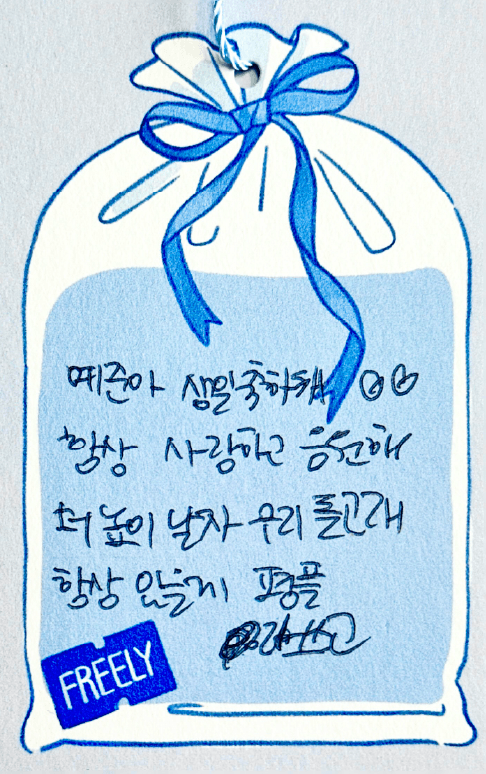 예준아 생일축하해
항상 사랑하고 응원해
더 높이 날자 우리 돌고래
항상 있을게 평플
FREELY